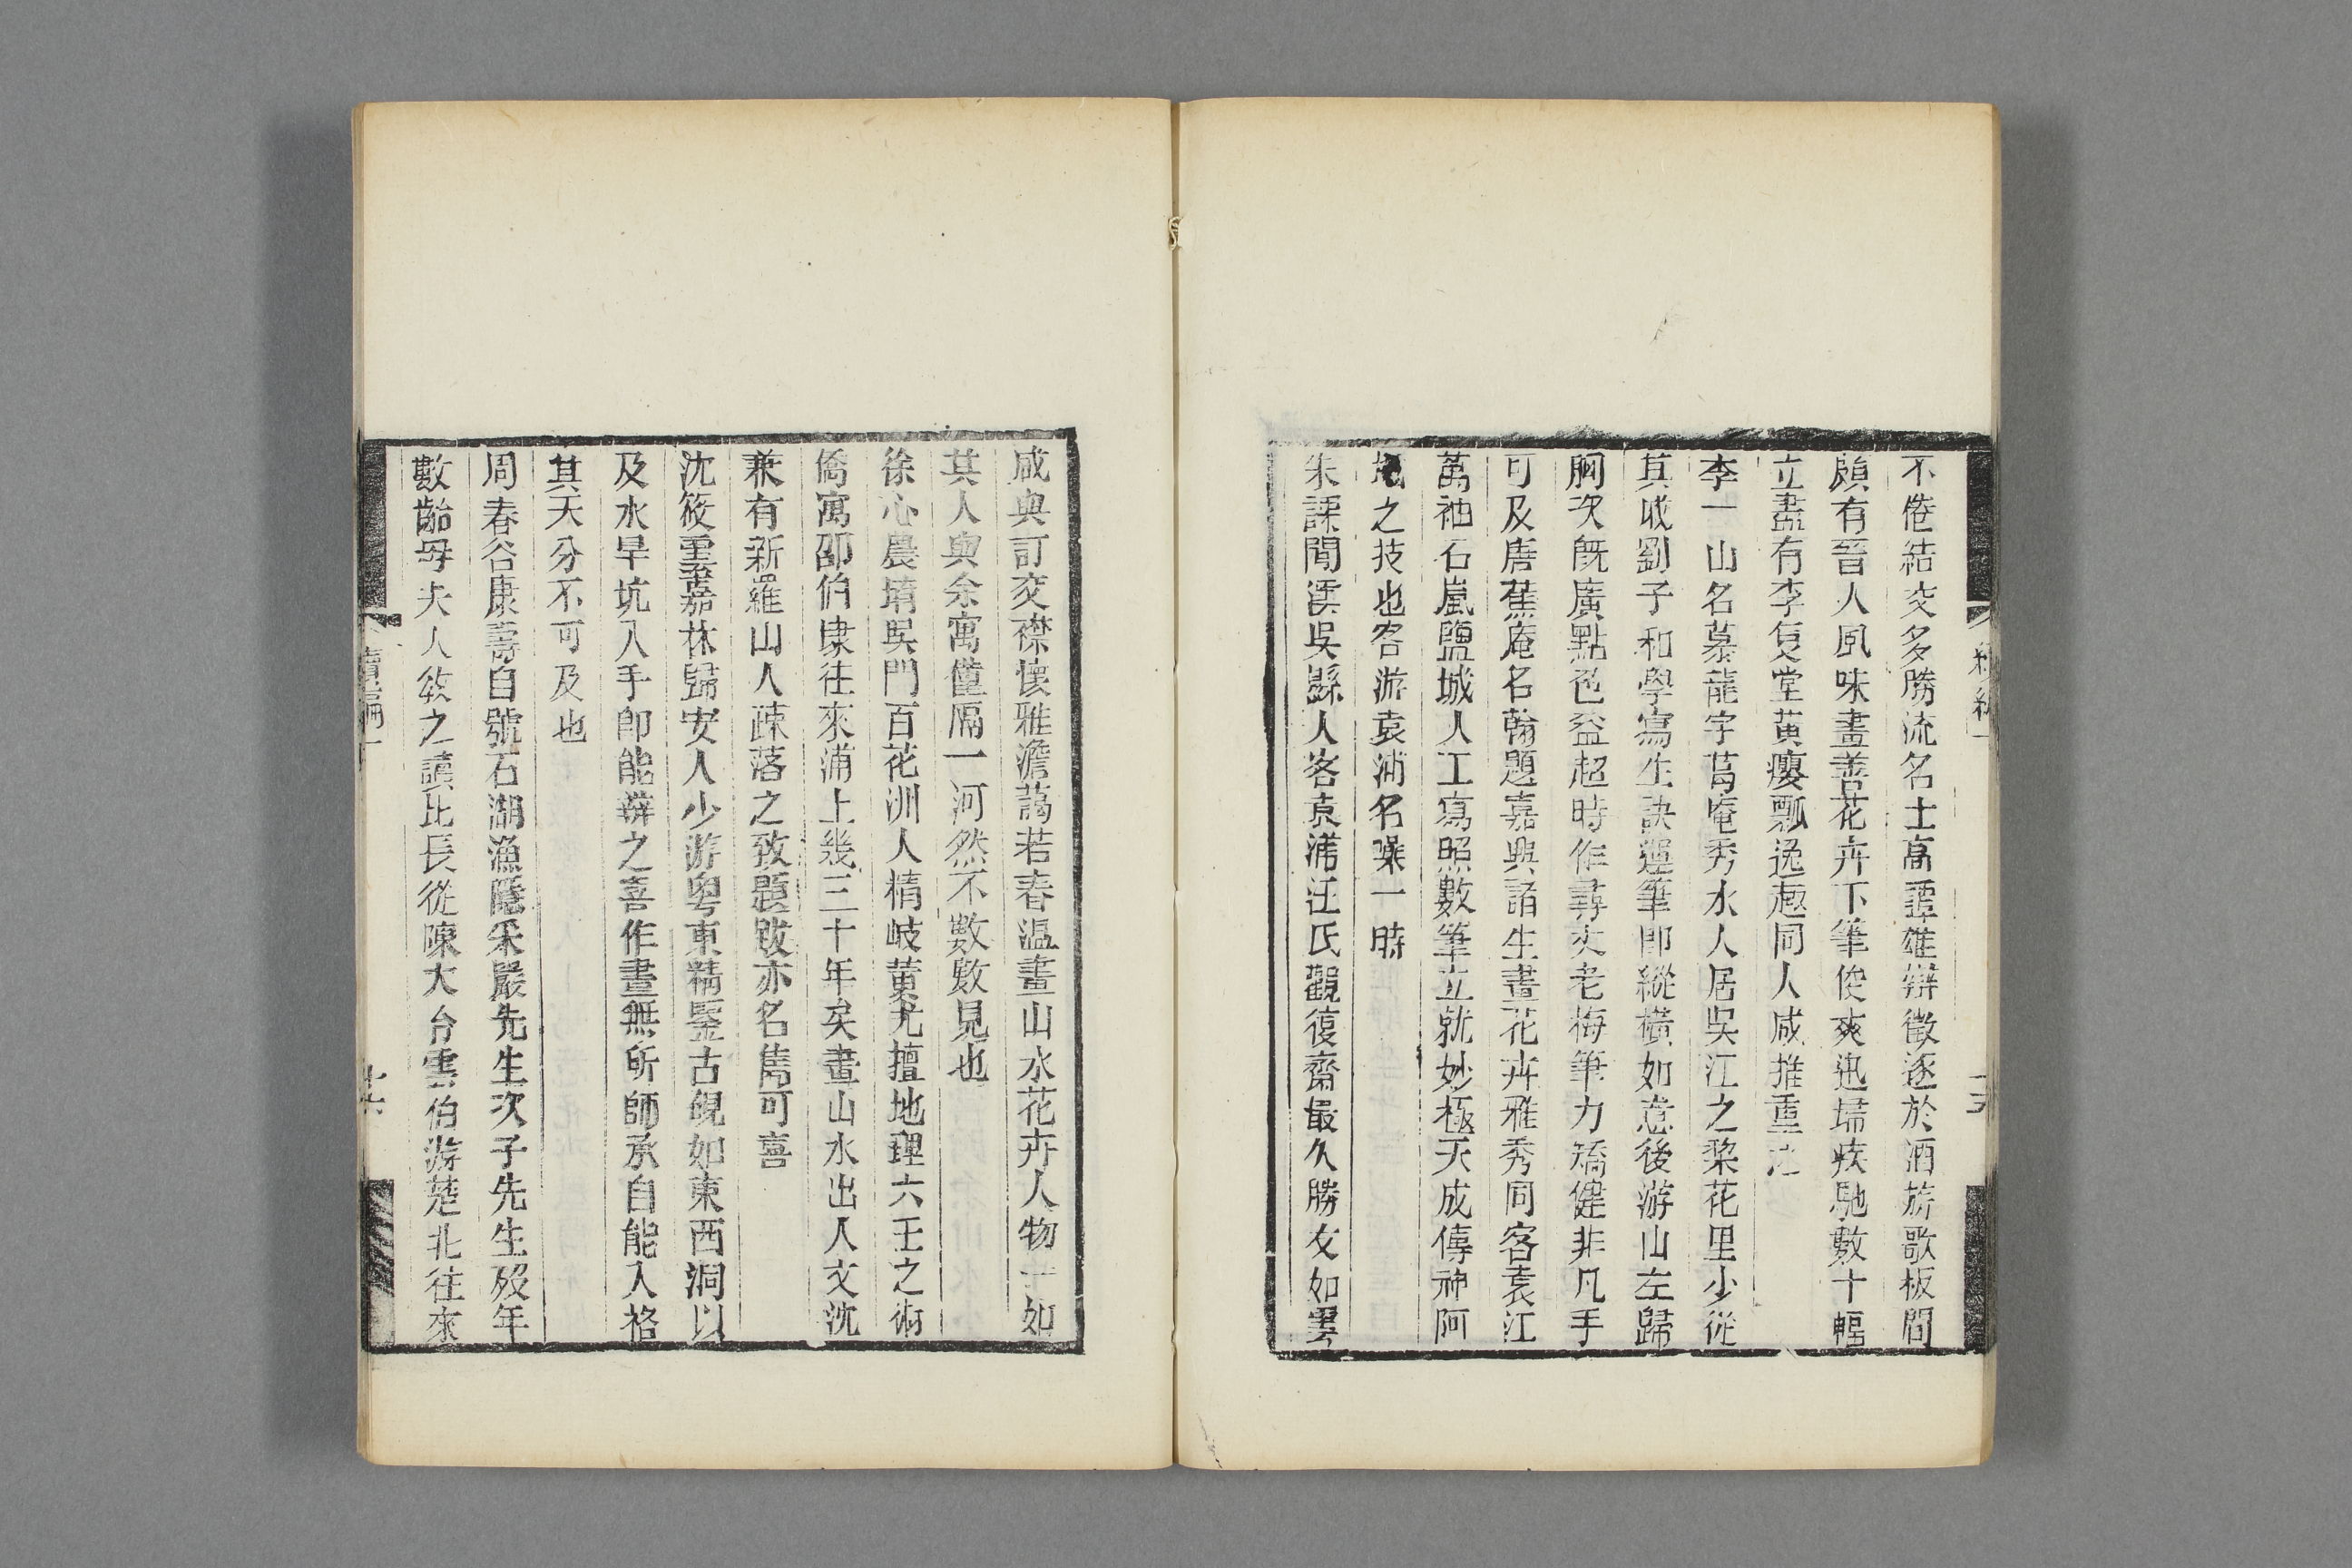 不倦結交多勝流名士高譚雄辯徵逐於酒旂歌板間
頗有晉人風味畫善花卉下筆俊爽迅埽疾馳數十幅
立盡有李復堂黃癭瓢逸趣同人咸推重之
李一山名慕龍字菖庵秀水人居吳江之棃花里少從
其戚劉子和學寫生訣運筆卽縱橫如意後游山左歸
胸次旣廣點色益超時作尋丈老梅筆力矯健非凡手
可及唐蕉庵名翰題嘉興諸生畫花卉雅秀同客袁江
萬袖石嵐鹽城人工寫照數筆立就妙極天成傳神阿
之技也客游袁浦名噪一時
朱課閒渼吳縣人客袁浦汪氏觀復齋最久勝友如雲
咸與訂交襟懷雅澹藹若春溫畫山水花卉人物一如
其人與余寓僅隔一河然不數數見也
徐心農晴吳門百花洲人精岐黃尤擅地理六壬之術
僑寓邵伯埭往來浦上幾三十年矣畫山水出人文沈
兼有新羅山人疎落之致題跋亦名雋可喜
沈筱雲嘉林歸安人少游粵東精鑒古硯如東西洞以
及水旱坑入手卽能辨之喜作畫無所師承自能入格
其天分不可及也
周春谷康壽自號石湖漁隱釆嚴先生次子先生歿年
數齡母夫人教之讀比長從陳大台雲伯游楚北往來
續編一